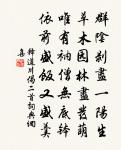 群陰剝盡一陽生
草木園林盡發萌
唯有衲僧無底鉢
依前盛飯又盛羹
釋道川偈二首句典網
集